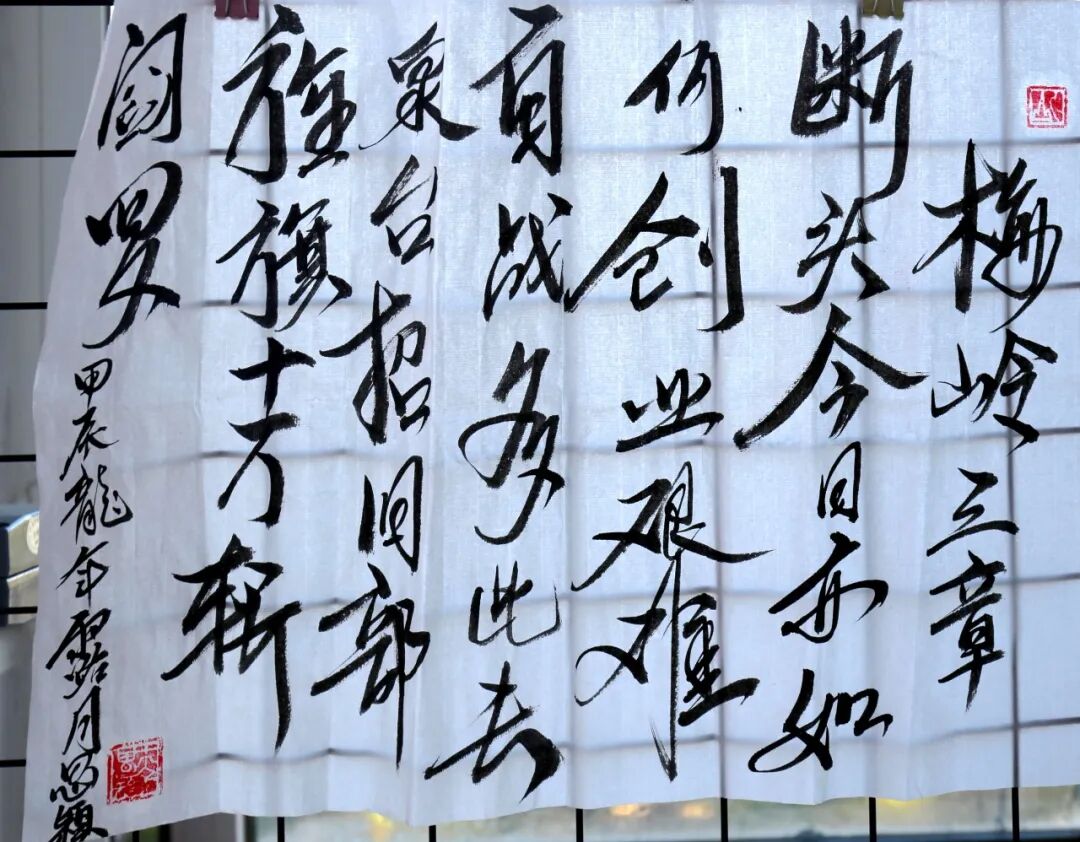 梅岭三章
断头今日亦如
何创业艰难
百战多此去
泉台招旧部
旌旗十万斩
阎罗
甲辰龍年露月思颖